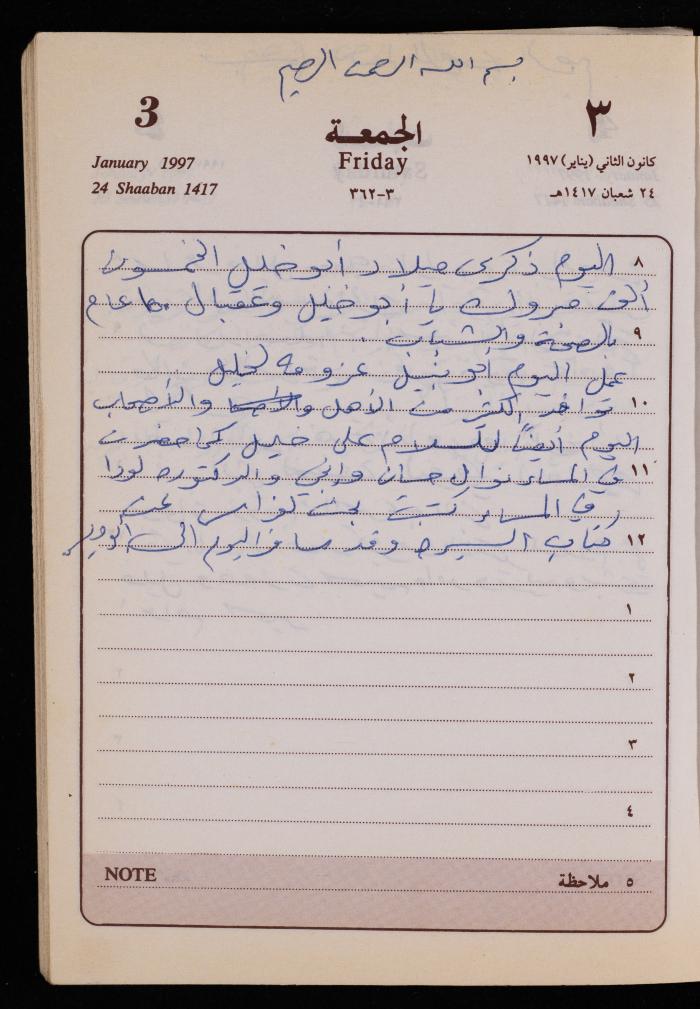 بسم الله الرحمن الرحيم
3
٣
الجمعة
January 1997
Friday
كانون الثاني (يناير) ١٩٩٧
24 Shaaban 1417
٣-٣٦٢
٢٤ شعبان ١٤١٧هـ
٨ اليوم ذكرى ميلاد أبو خليل الخمسون
ألف مبروك يا أبو خليل وعقبال عام
٩ بالصحة والشباب.
عمل اليوم أبو نبيل عزومة لخليل
١٠ توافد الكثير من الأهل والأصحاب
اليوم أيضاً للسلام على خليل كما حضرت
١١ في المساء نوال حسان والدكتوره
وفي المساء كتبت بحث عن
١٢ كتاب السيره وقد سافر اليوم الى
١
٢
٣
٤
NOTE
٥ ملاحظة